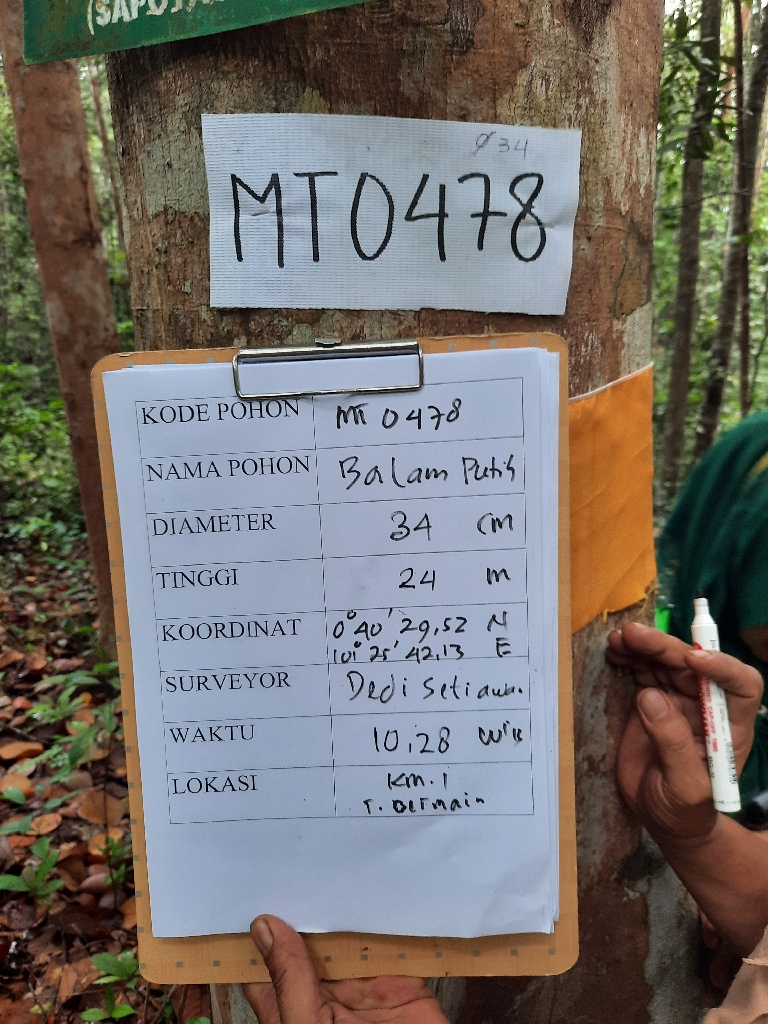 (SAPOTA
Ø 34
MT0478
KODE POHON MT 0478
NAMA POHON Balam Putih
DIAMETER 34 cm
TINGGI 24 m
KOORDINAT 0° 40' 29,52 N
101° 25' 42,13 E
SURVEYOR Dedi Setiawan
WAKTU 10.28 WIB
LOKASI Km. 1
T. Bermain